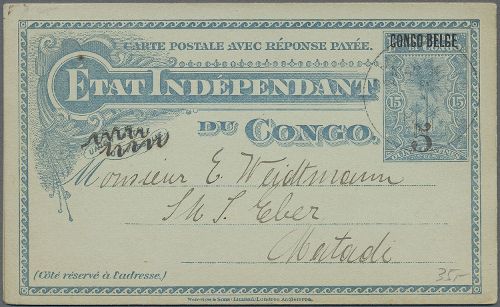 CARTE POSTALE AVEC RÉPONSE PAYÉE.
CONGO BELGE
ETAT INDÉPENDANT
DU CONGO.
15 15
5
Monsieur E. Weidtmann
S M S. Eber
Matadi
(Côté réservé à l'adresse.)
35.-
Waterlow & Sons Limited, Londres, Angleterre.